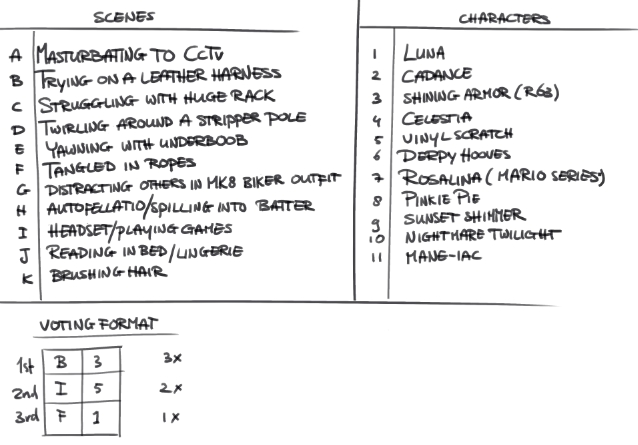 SCENES
A MASTURBATING TO CCTV
B TRYING ON A LEATHER HARNESS
C STRUGGLING WITH HUGE RACK
D TWIRLING AROUND A STRIPPER POLE
E YAWNING WITH UNDERBOOB
F TANGLED IN ROPES
G DISTRACTING OTHERS IN MK8 BIKER OUTFIT
H AUTOFELLATIO/SPILLING INTO BATTER
I HEADSET/PLAYING GAMES
J READING IN BED/LINGERIE
K BRUSHING HAIR
CHARACTERS
1 LUNA
2 CADANCE
3 SHINING ARMOR (R63)
4 CELESTIA
5 VINYL SCRATCH
6 DERPY HOOVES
7 ROSALINA (MARIO SERIES)
8 PINKIE PIE
9 SUNSET SHIMMER
10 NIGHTMARE TWILIGHT
11 MANE-IAC
VOTING FORMAT
1st B 3 3x
2nd I 5 2x
3rd F 1 1x